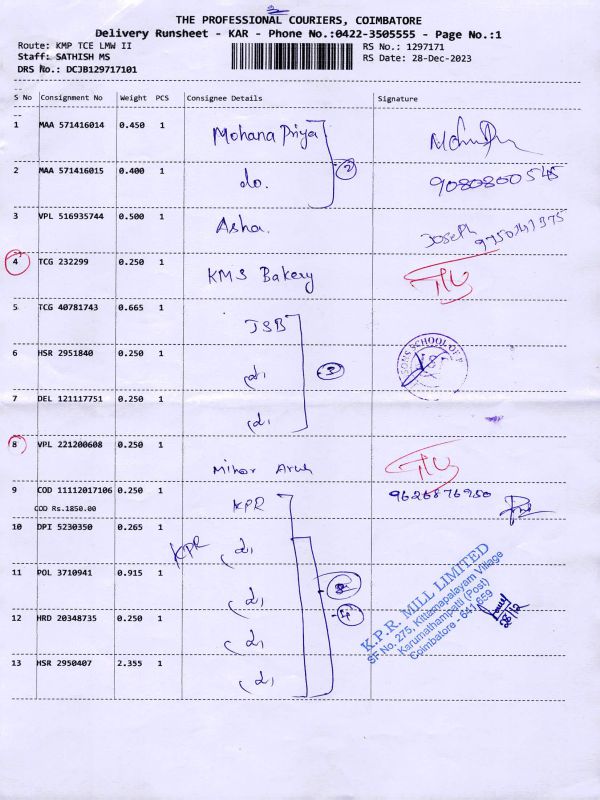 THE PROFESSIONAL COURIERS, COIMBATORE
Delivery Runsheet - KAR - Phone No.:0422-3505555 - Page No.:1
Route: KMP TCE LMW II
RS No.: 1297171
Staff: SATHISH MS
RS Date: 28-Dec-2023
DRS No.: DCJB129717101
S No Consignment No Weight PCS Consignee Details Signature
1 MAA 571416014 0.450 1 Mohana Priya
2 MAA 571416015 0.400 1 do. 2 9080800545
3 VPL 516935744 0.500 1 Asha. Joseph
4 TCG 232299 0.250 1 KMS Bakery
5 TCG 40781743 0.665 1 JSB
6 HSR 2951840 0.250 1 d, 3 SONS SCHOOL OF
7 DEL 121117751 0.250 1 d,
8 VPL 221200608 0.250 1
9 COD 11112017106 0.250 1 KPR 9626876950
COD Rs.1850.00
10 DPI 5230350 0.265 1 KPR d,
11 POL 3710941 0.915 1 d,
12 HRD 20348735 0.250 1 d, 4
13 HSR 2950407 2.355 1 d,
K.P.R. MILL LIMITED
SF No. 275, Kittampalayam Village
Karumathampatti (Post)
Coimbatore - 641 659
28/12